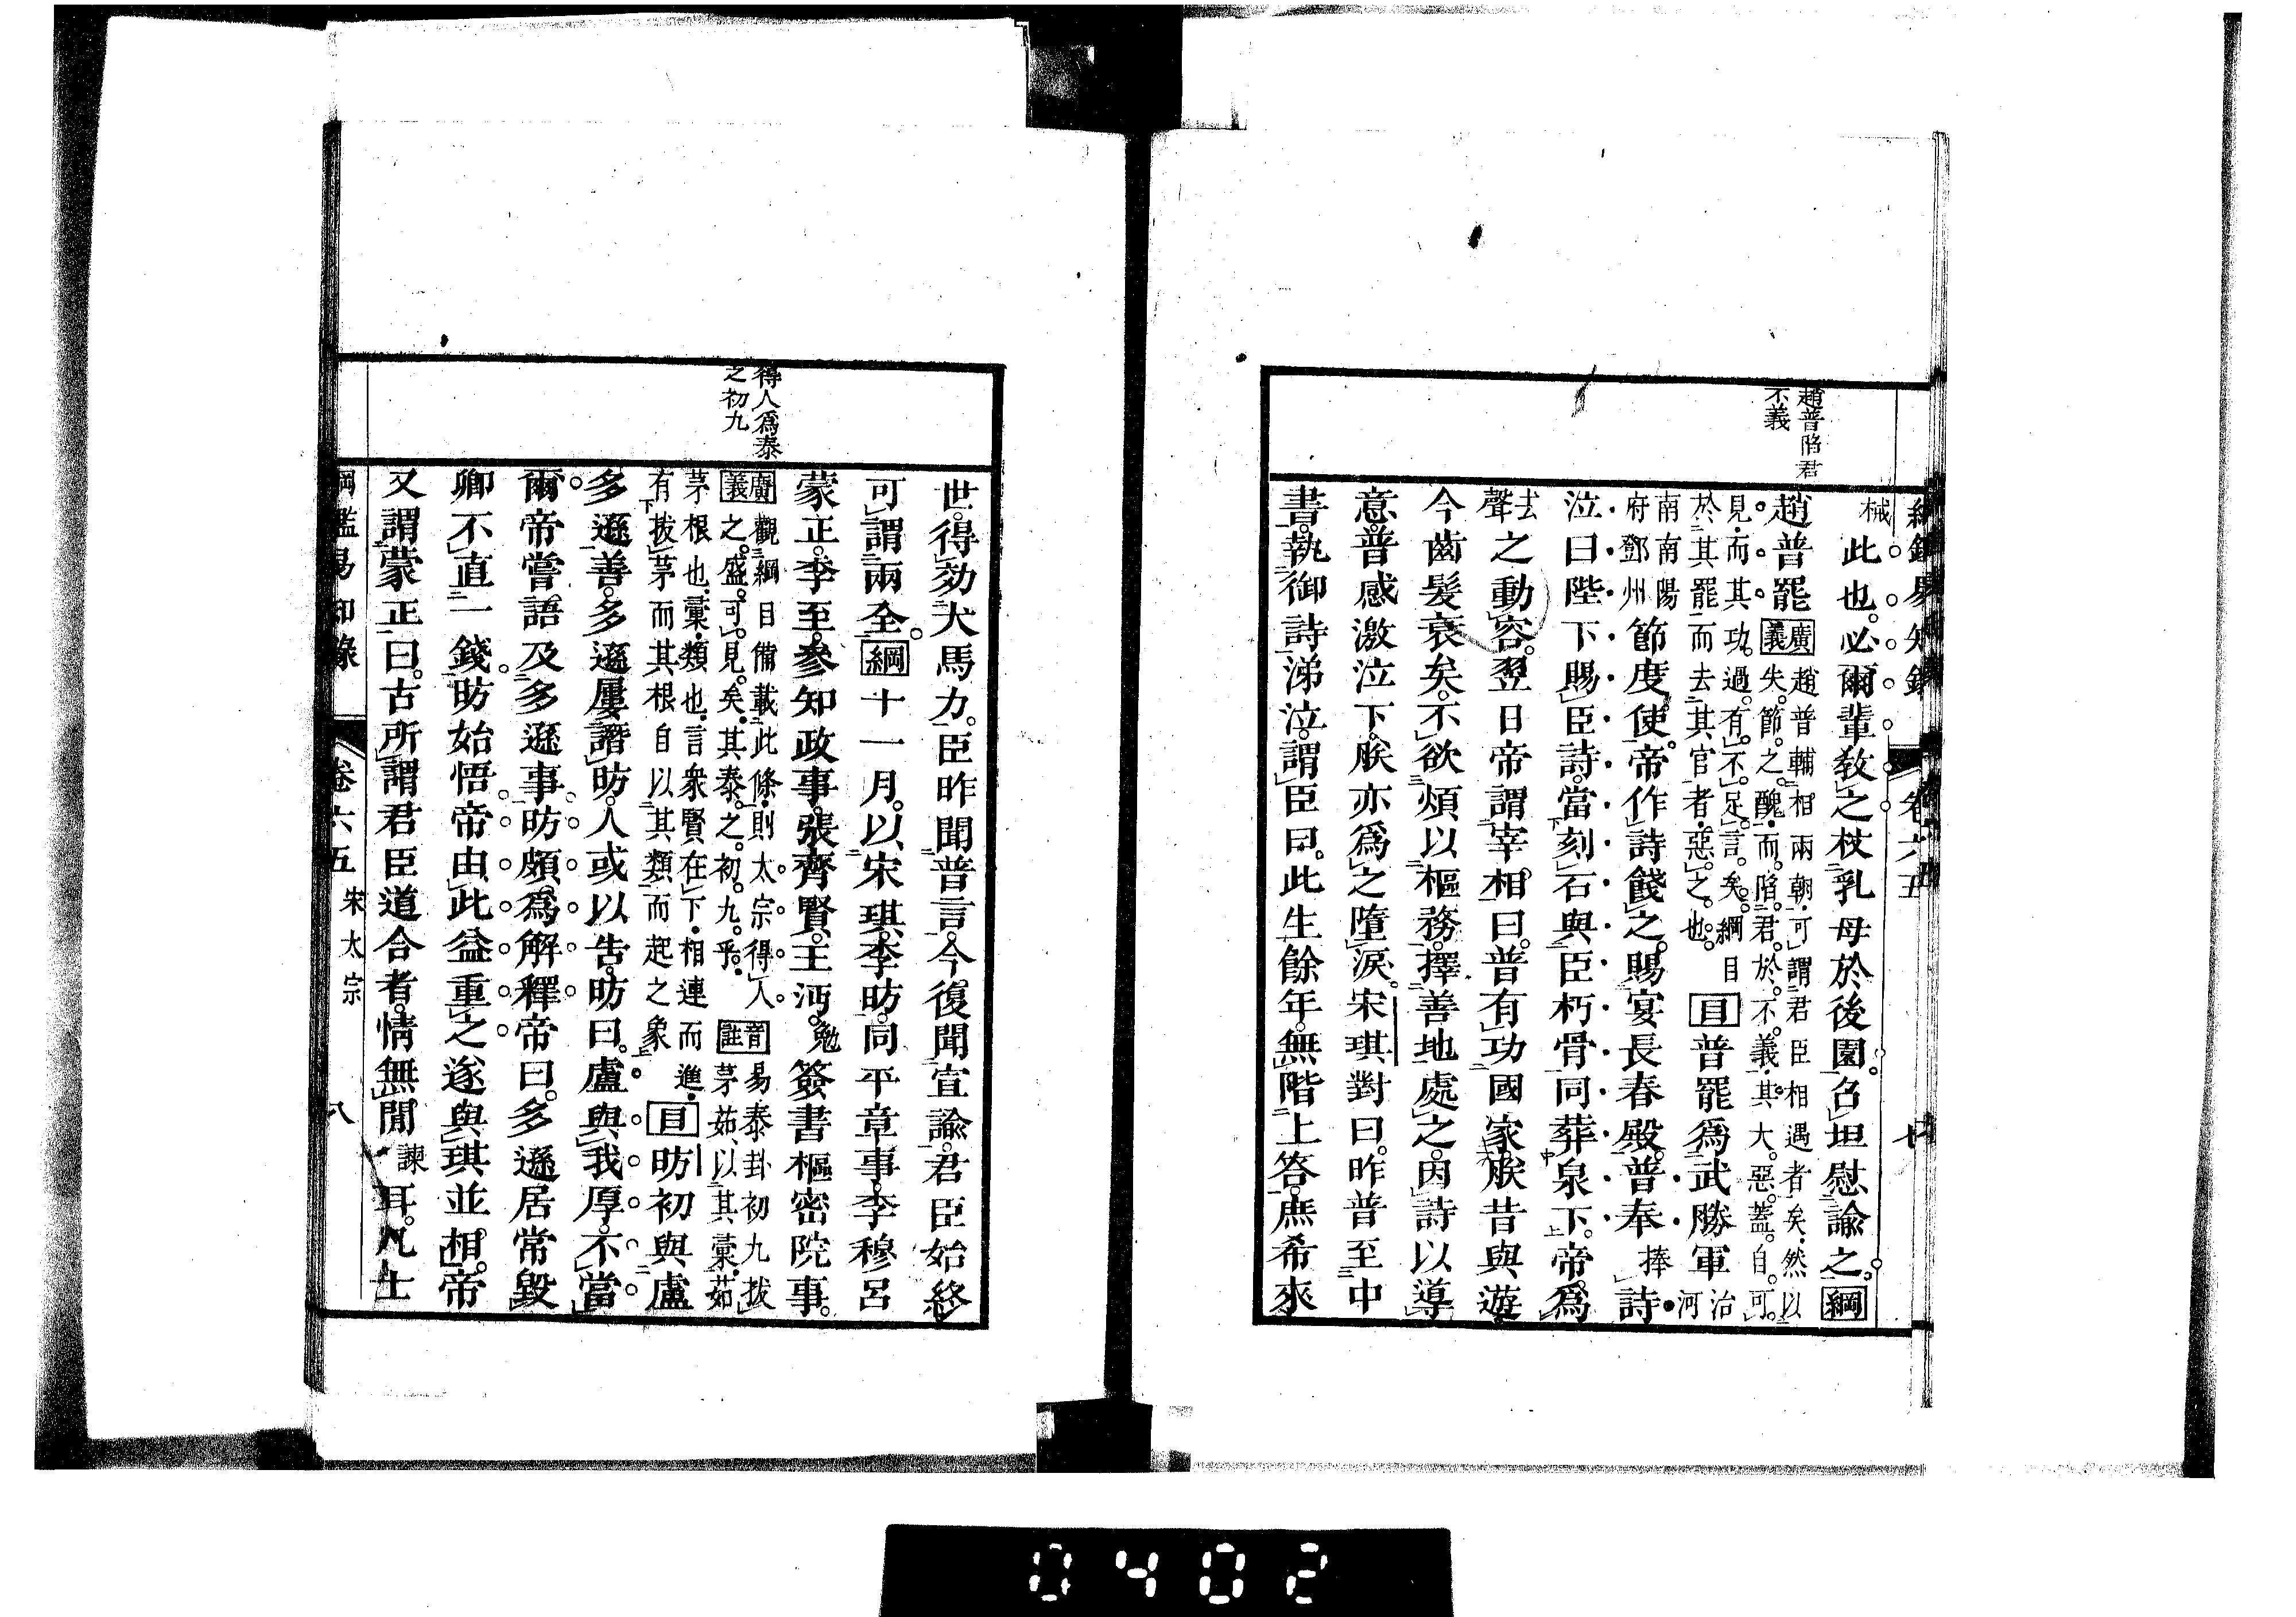 綱鑑易知錄 卷六五 七
趙普陷君
不義
械此也。必爾輩教之杖乳母於後園。召坦慰諭之。綱
趙普罷廣義趙普輔相兩朝可謂君臣相遇者矣然以
矣節之醜而陷君於不義其大惡蓋自可
見而其功過有不足言矣綱目
於其罷而去其官者惡之也。目普罷爲武勝軍治河
南南陽
府鄧州節度使。帝作詩餞之。賜宴長春殿。普奉捧詩
泣曰陛下賜臣詩。當刻石與臣朽骨同葬泉下。帝爲
去聲之動容。翌日帝謂宰相曰。普有功國家。朕昔與遊。
今齒髮衰矣。不欲煩以樞務。擇善地處之。因詩以導
意。普感激泣下。朕亦爲之墮淚。宋琪對曰。昨普至中
書。執御詩涕泣。謂臣曰。此生餘年。無階上答。庶希來
得人爲泰
之初九
世。得効犬馬力。臣昨聞普言。今復聞宣諭。君臣始終
可謂兩全。綱十一月。以宋琪。李昉。同平章事。李穆呂
蒙正。李至。參知政事。張齊賢。王沔。勉簽書樞密院事。
廣義觀綱目備載此條則太宗得人
之盛可見矣其泰之初九乎音註易泰卦初九拔
茅茹以其彙茹
茅根也彙類也言衆賢在下相連而進
有拔茅而其根自以其類而起之象目昉初與盧
多遜善。多遜屢譖昉。人或以告。昉曰。盧與我厚。不當
爾。帝嘗語及多遜事。昉頗爲解釋。帝曰。多遜居常毀
卿不直一錢。昉始悟。帝由此益重之。遂與琪並相。帝
又謂蒙正曰。古所謂君臣道合者。情無閒諫耳。凡士
綱鑑易知錄 卷六五 宋太宗 八
0402